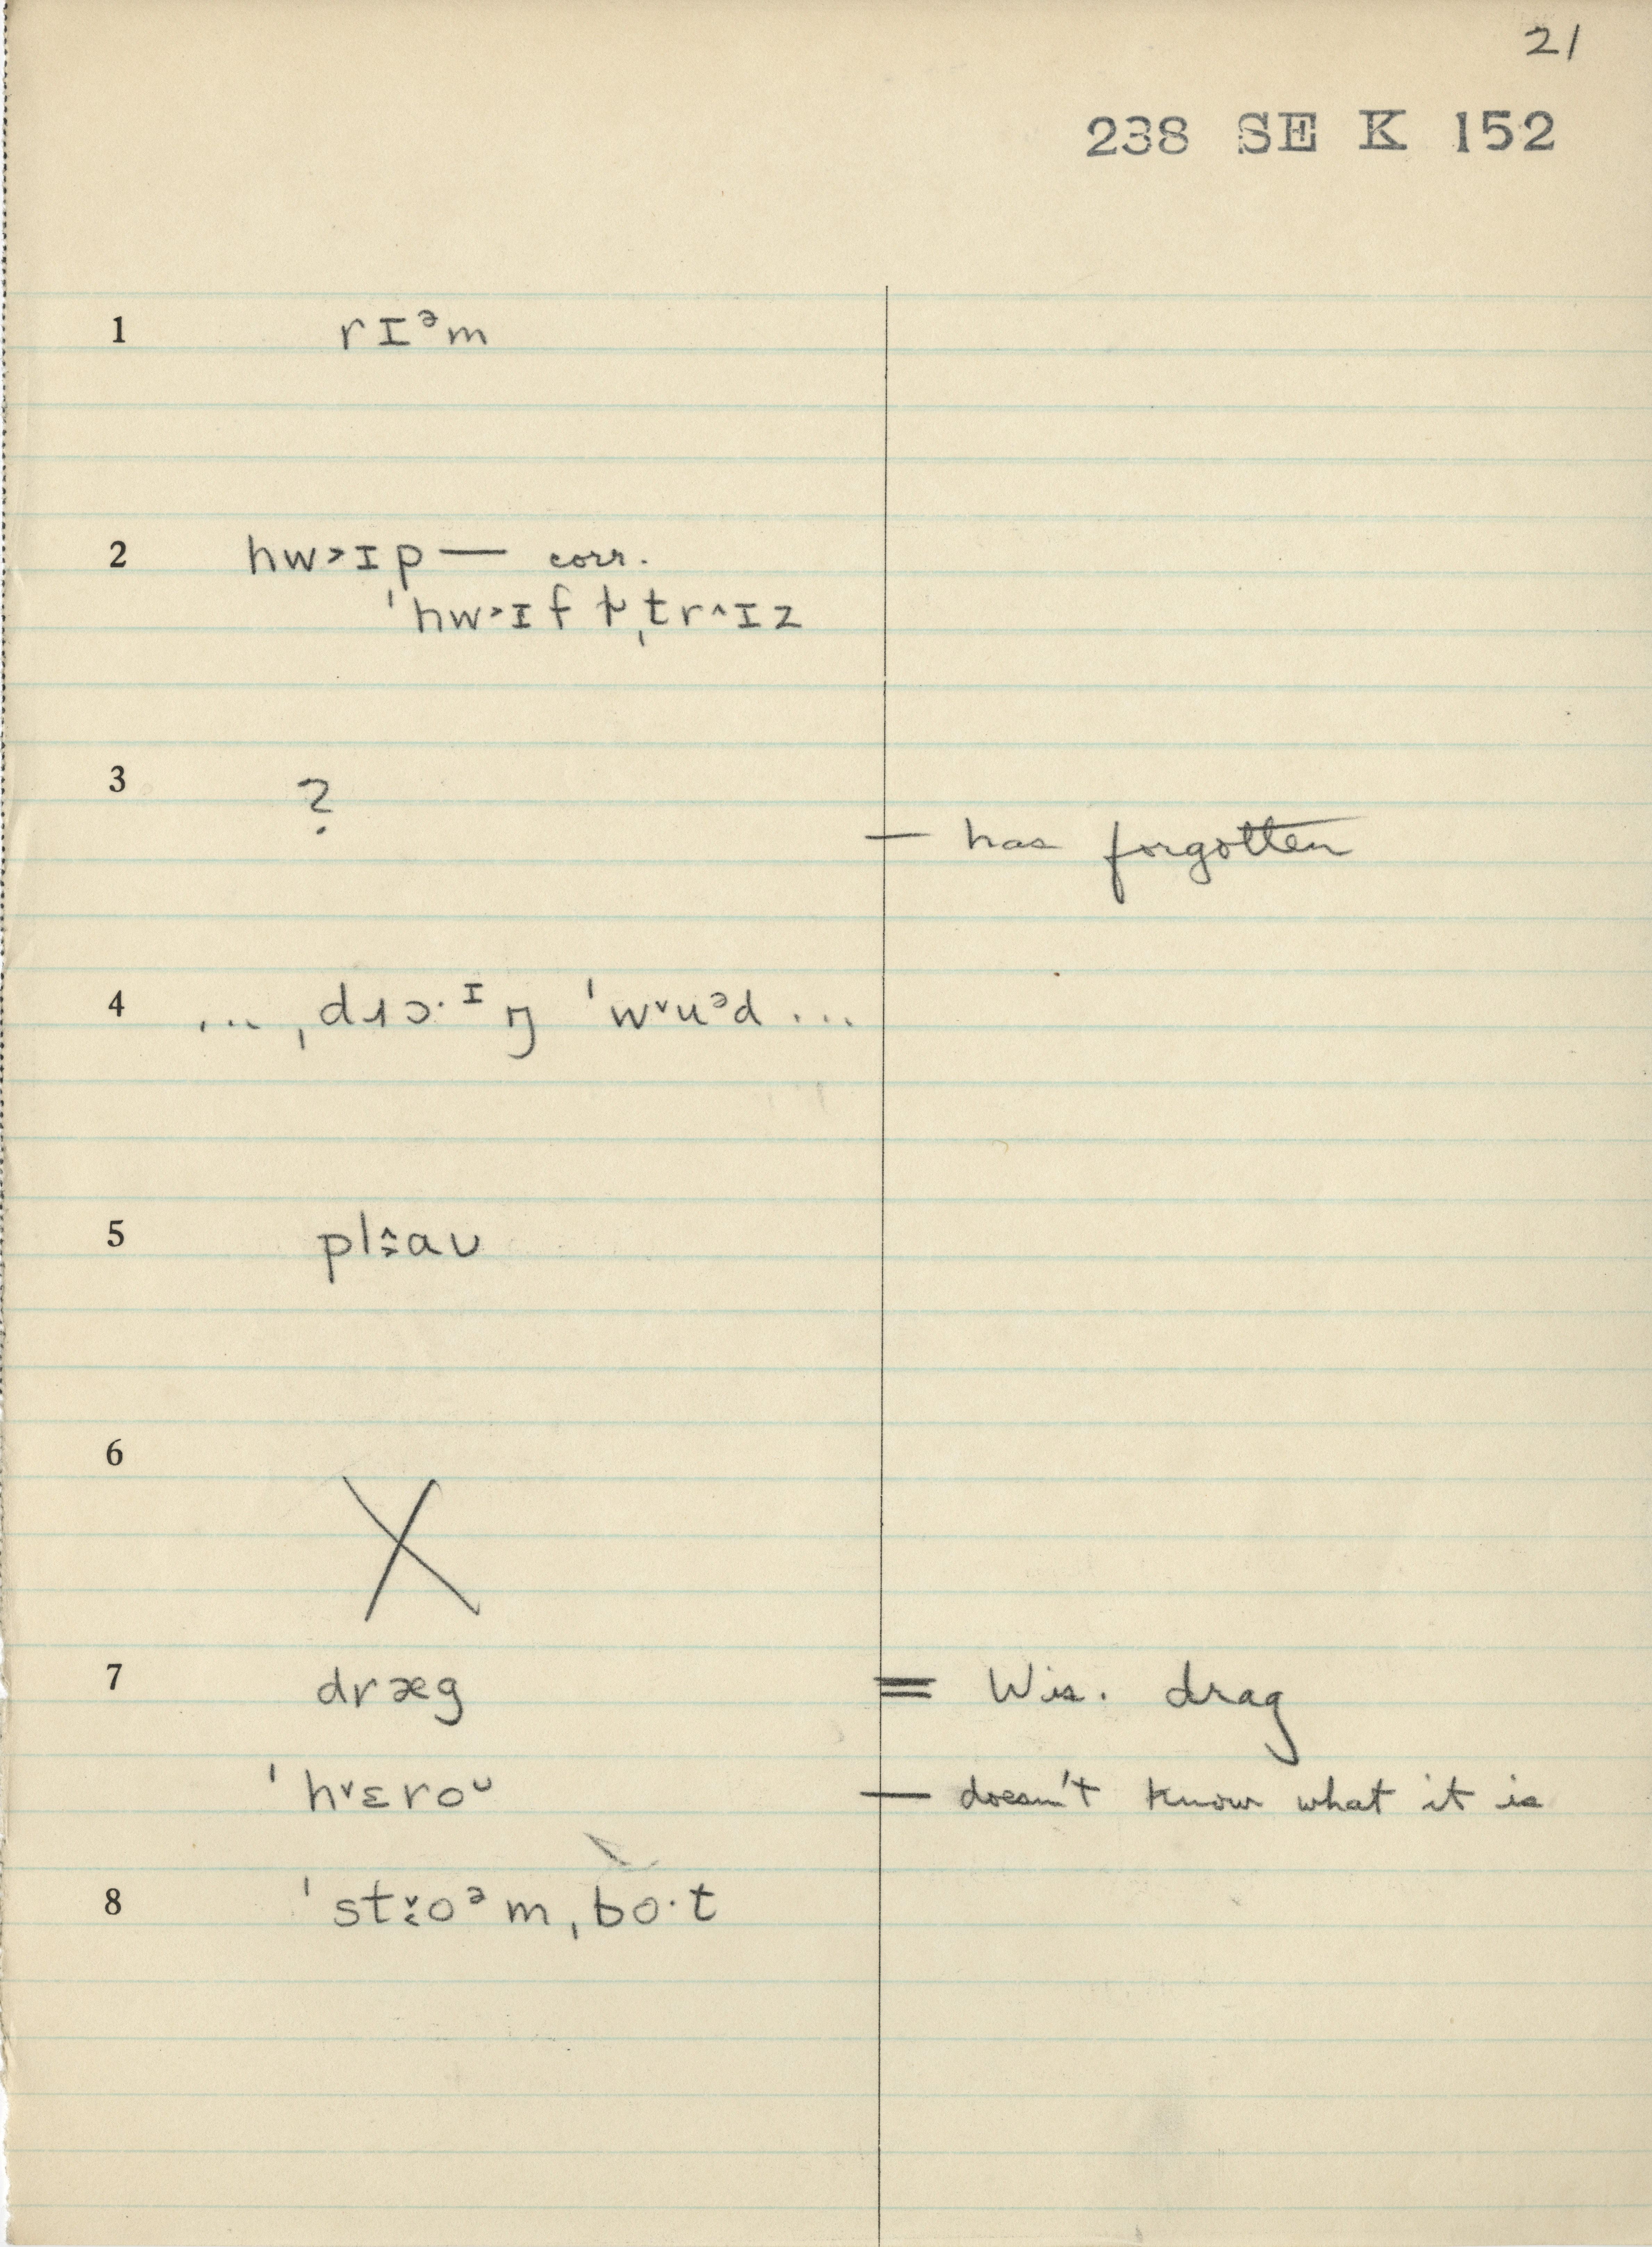 21
238 SE K 152
1 rɪᵊm
2 hw˃ɪp — corr.
ˈhw˃ɪf ɫ̩ˌtr˄ɪz
3 ?
— has forgotten
4 ... ˌdɹɔ·ᶦŋ ˈw˅uᵊd ...
5 pl˄̨aʊ
6 X
7 dræg = Wis. drag
ˈh˅ɛroᶷ — doesn't know what it is
8 ˈst˅̨oᵊmˌbo·t